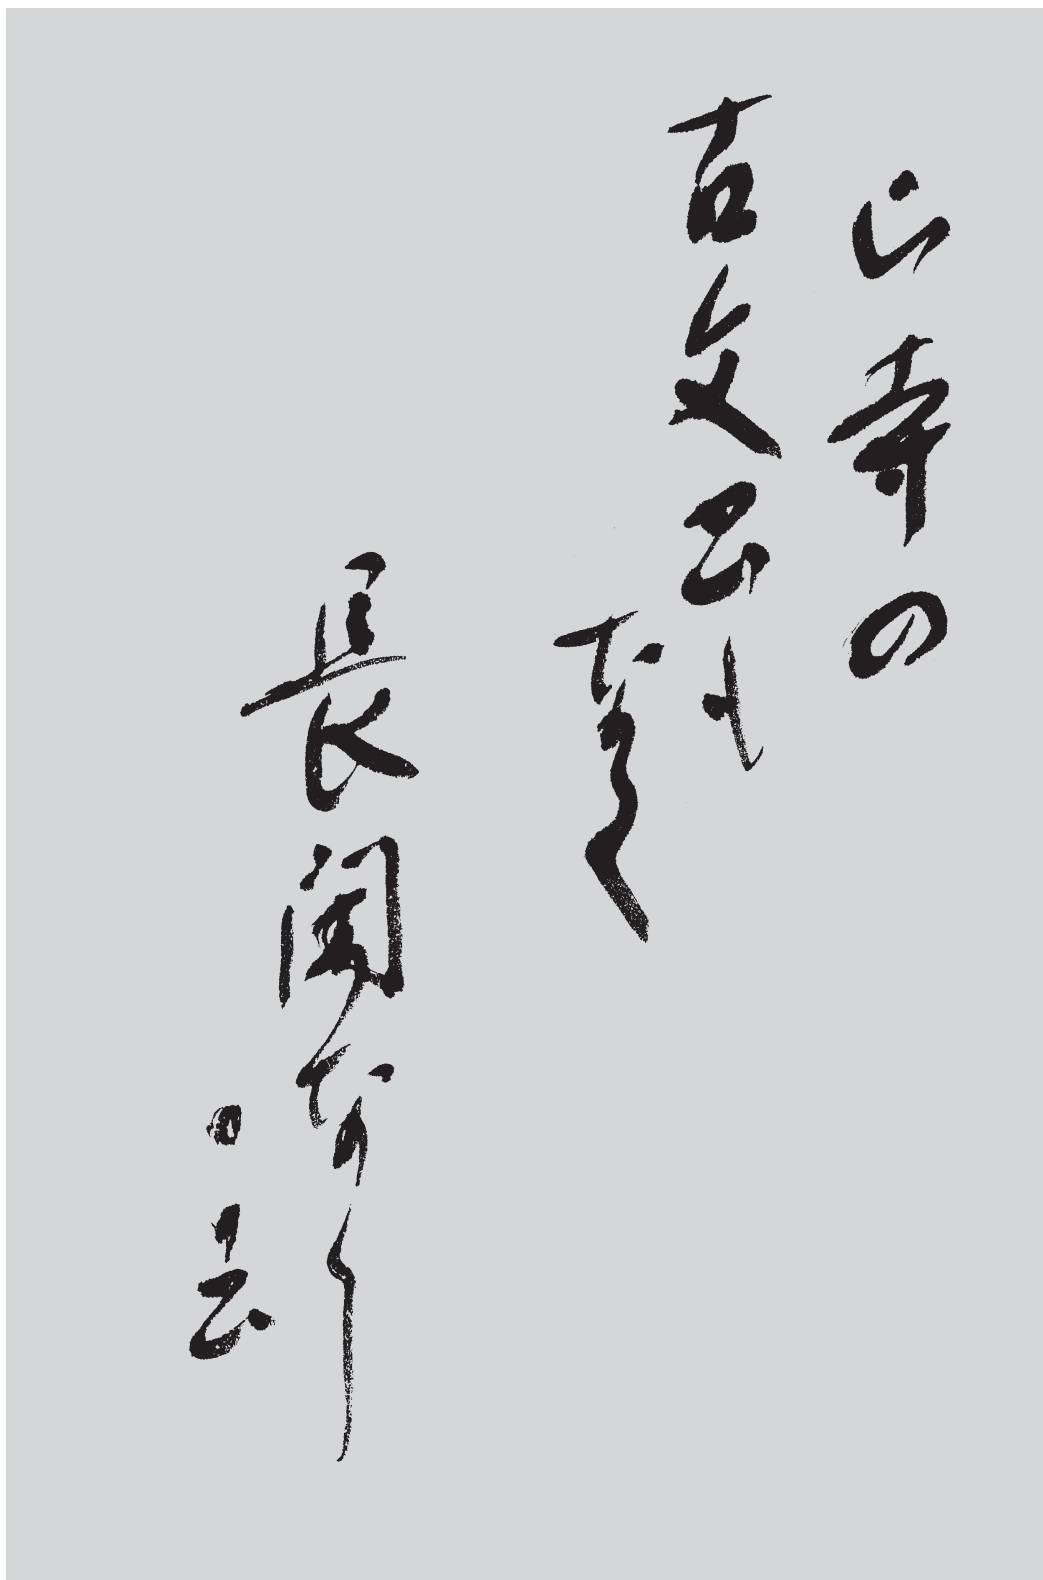 山寺の
古文書も
なく
長閑なり